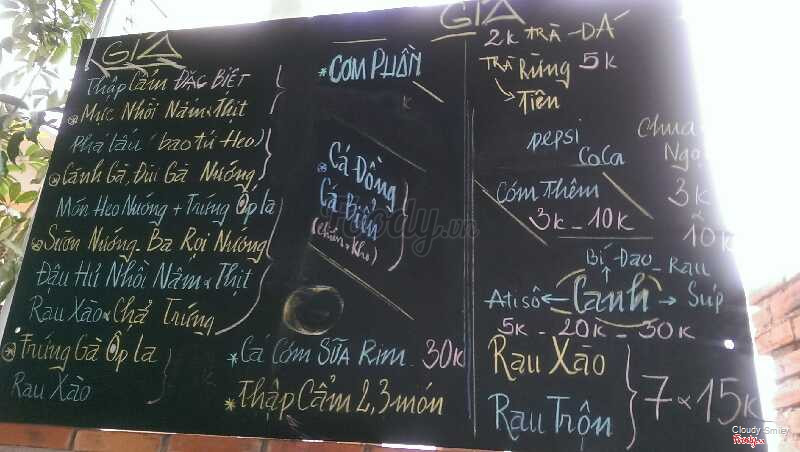 GIÁ
Thập Cẩm ĐẶC BIỆT
Mực Nhồi Nấm + Thịt
Phá lấu (bao tử Heo)
Cánh Gà, Đùi Gà Nướng
Món Heo Nướng + Trứng Ốp la
Sườn Nướng, Ba Rọi Nướng
Đậu Hủ Nhồi Nấm & Thịt
Rau Xào & Chả Trứng
Trứng Gà Ốp la
Rau Xào
* CƠM PHẦN
K
* Cá Đồng
Cá Biển
(chiên + kho)
* Cá Cơm SỮA Rim 30K
* Thập Cẩm 2, 3 món
GIÁ
2K TRÀ - ĐÁ
TRÀ Rừng 5K
Tiên
pepsi
CoCa
Cơm Thêm
3K - 10K
Chua
Ngọ
3K
10K
Bí Đao - Rau
Atisô ← Canh → Súp
5K - 20K - 30K
Rau Xào
Rau Trộn
7 & 15K
Foody.vn
Cloudy Smiley
Foody.vn